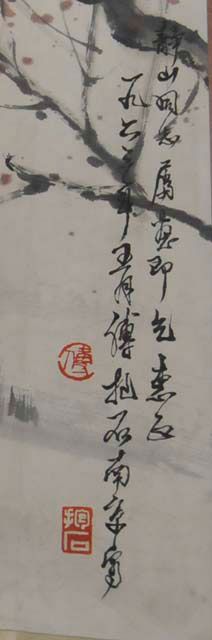 静山同志属画即乞教正
一九六三年五月傅抱石南京寫
傅
抱石